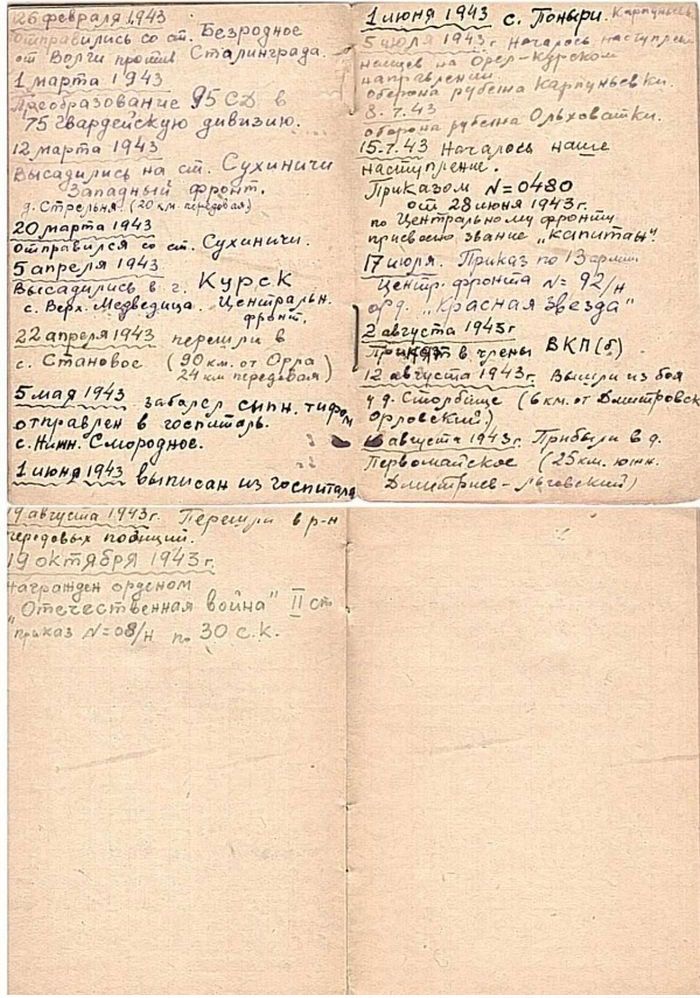 26 февраля 1943
Отправились со ст. Безродное
от Волги против Сталинграда.
1 марта 1943
Преобразование 95 СД в
75 гвардейскую дивизию.
12 марта 1943
Высадились на ст. Сухиничи
Западный фронт.
д. Стрельня. (20 км. передовая)
20 марта 1943
отправился со ст. Сухиничи.
5 апреля 1943
Высадились в г. Курск
с. Верх. Медведица. Центральн.
фронт.
22 апреля 1943 перешли в
с. Становое (90 км. от Орла
24 км передовая)
5 мая 1943 заболел сыпн. тифом
отправлен в госпиталь.
с. Нижн. Смородное.
1 июня 1943 выписан из госпиталя
1 июня 1943 с. Поныри.
5 июля 1943 г. Началось наступлен
немцев на Орел-Курском
направлении
оборона рубежа Карпуньевки.
8.7.43
оборона рубежа Ольховатки.
15.7.43 Началось наше
наступление.
Приказом N=0480
от 28 июня 1943 г.
по Центральному фронту
присвоено звание „Капитан".
17 июля. Приказ по 13 армии
Центр. фронта N= 92/н
орд. „Красная звезда"
2 августа 1943 г
Принят в члены ВКП(б)
12 августа 1943 г. Вышли из боя
у д. Столбище (6 км. от Дмитровск
Орловский.)
августа 1943 г. Прибыли в д.
Первомайское (25 км. южн.
Дмитриев-Льговский)
августа 1943 г. Перешли в р-н
передовых позиций.
19 октября 1943 г.
награжден орденом
"Отечественная война" II ст
приказ N=08/н по 30 с.к.